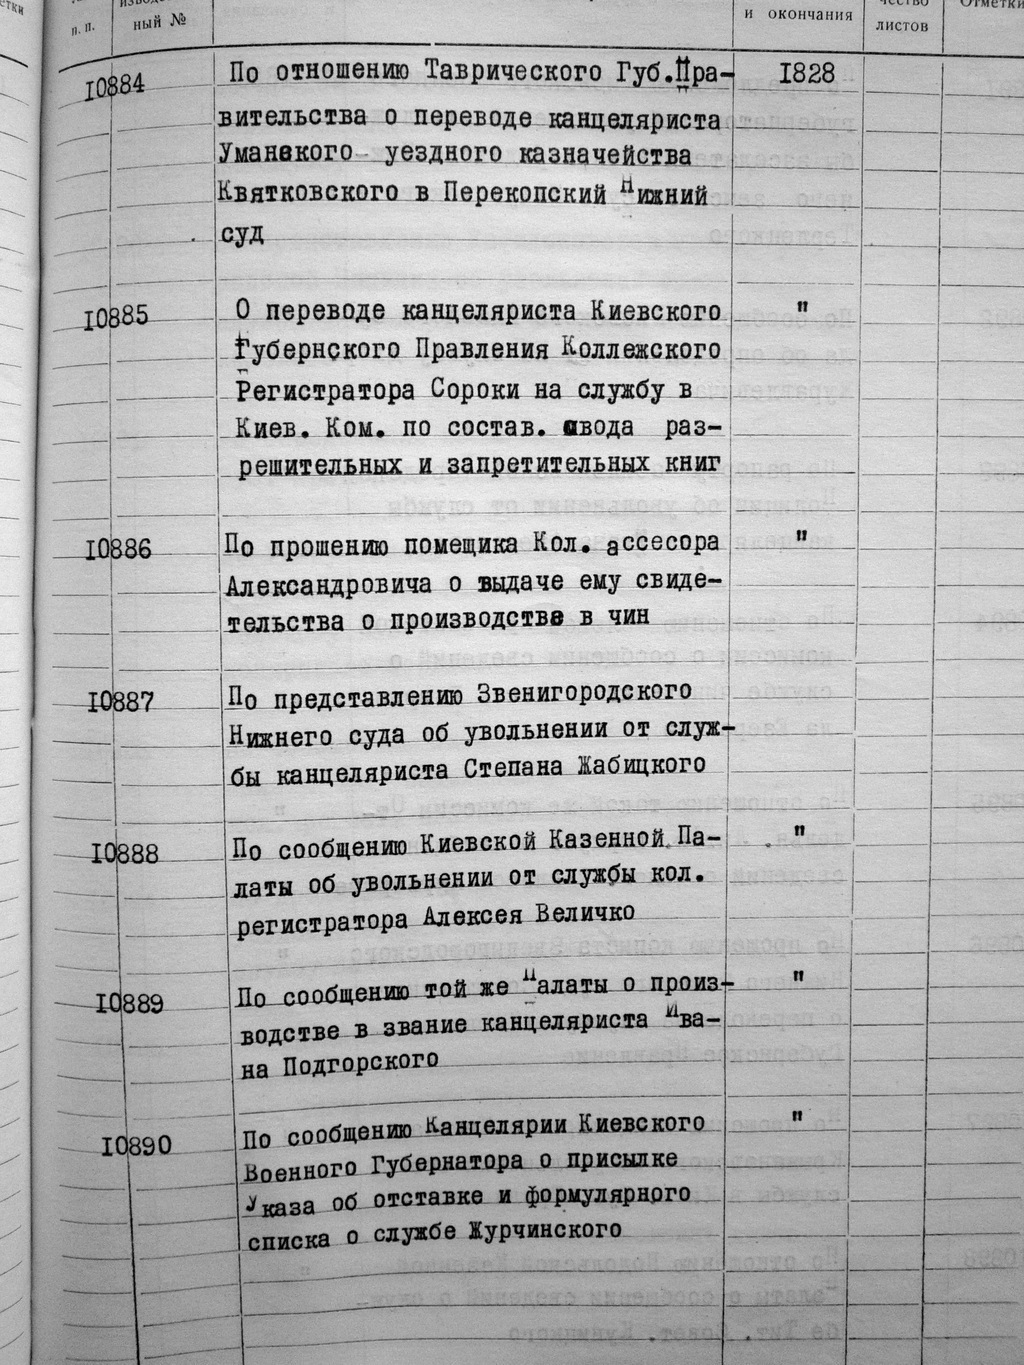 п. п.
ный №
и окончания
чество
листов
Отметки
10884
По отношению Таврического Губ.Пра-
1828
вительства о переводе канцеляриста
Уманского уездного казначейства
Квятковского в Перекопский Нижний
суд
10885
О переводе канцеляриста Киевского
"
Губернского Правления Коллежского
Регистратора Сороки на службу в
Киев. Ком. по состав. свода раз-
решительных и запретительных книг
10886
По прошению помещика Кол. ассесора
"
Александровича о выдаче ему свиде-
тельства о производстве в чин
10887
По представлению Звенигородского
Нижнего суда об увольнении от служ-
бы канцеляриста Степана Жабицкого
10888
По сообщению Киевской Казенной Па-
"
латы об увольнении от службы кол.
регистратора Алексея Величко
10889
По сообщению той же Палаты о произ-
"
водстве в звание канцеляриста Ива-
на Подгорского
10890
По сообщению Канцелярии Киевского
"
Военного Губернатора о присылке
Указа об отставке и формулярного
списка о службе Журчинского